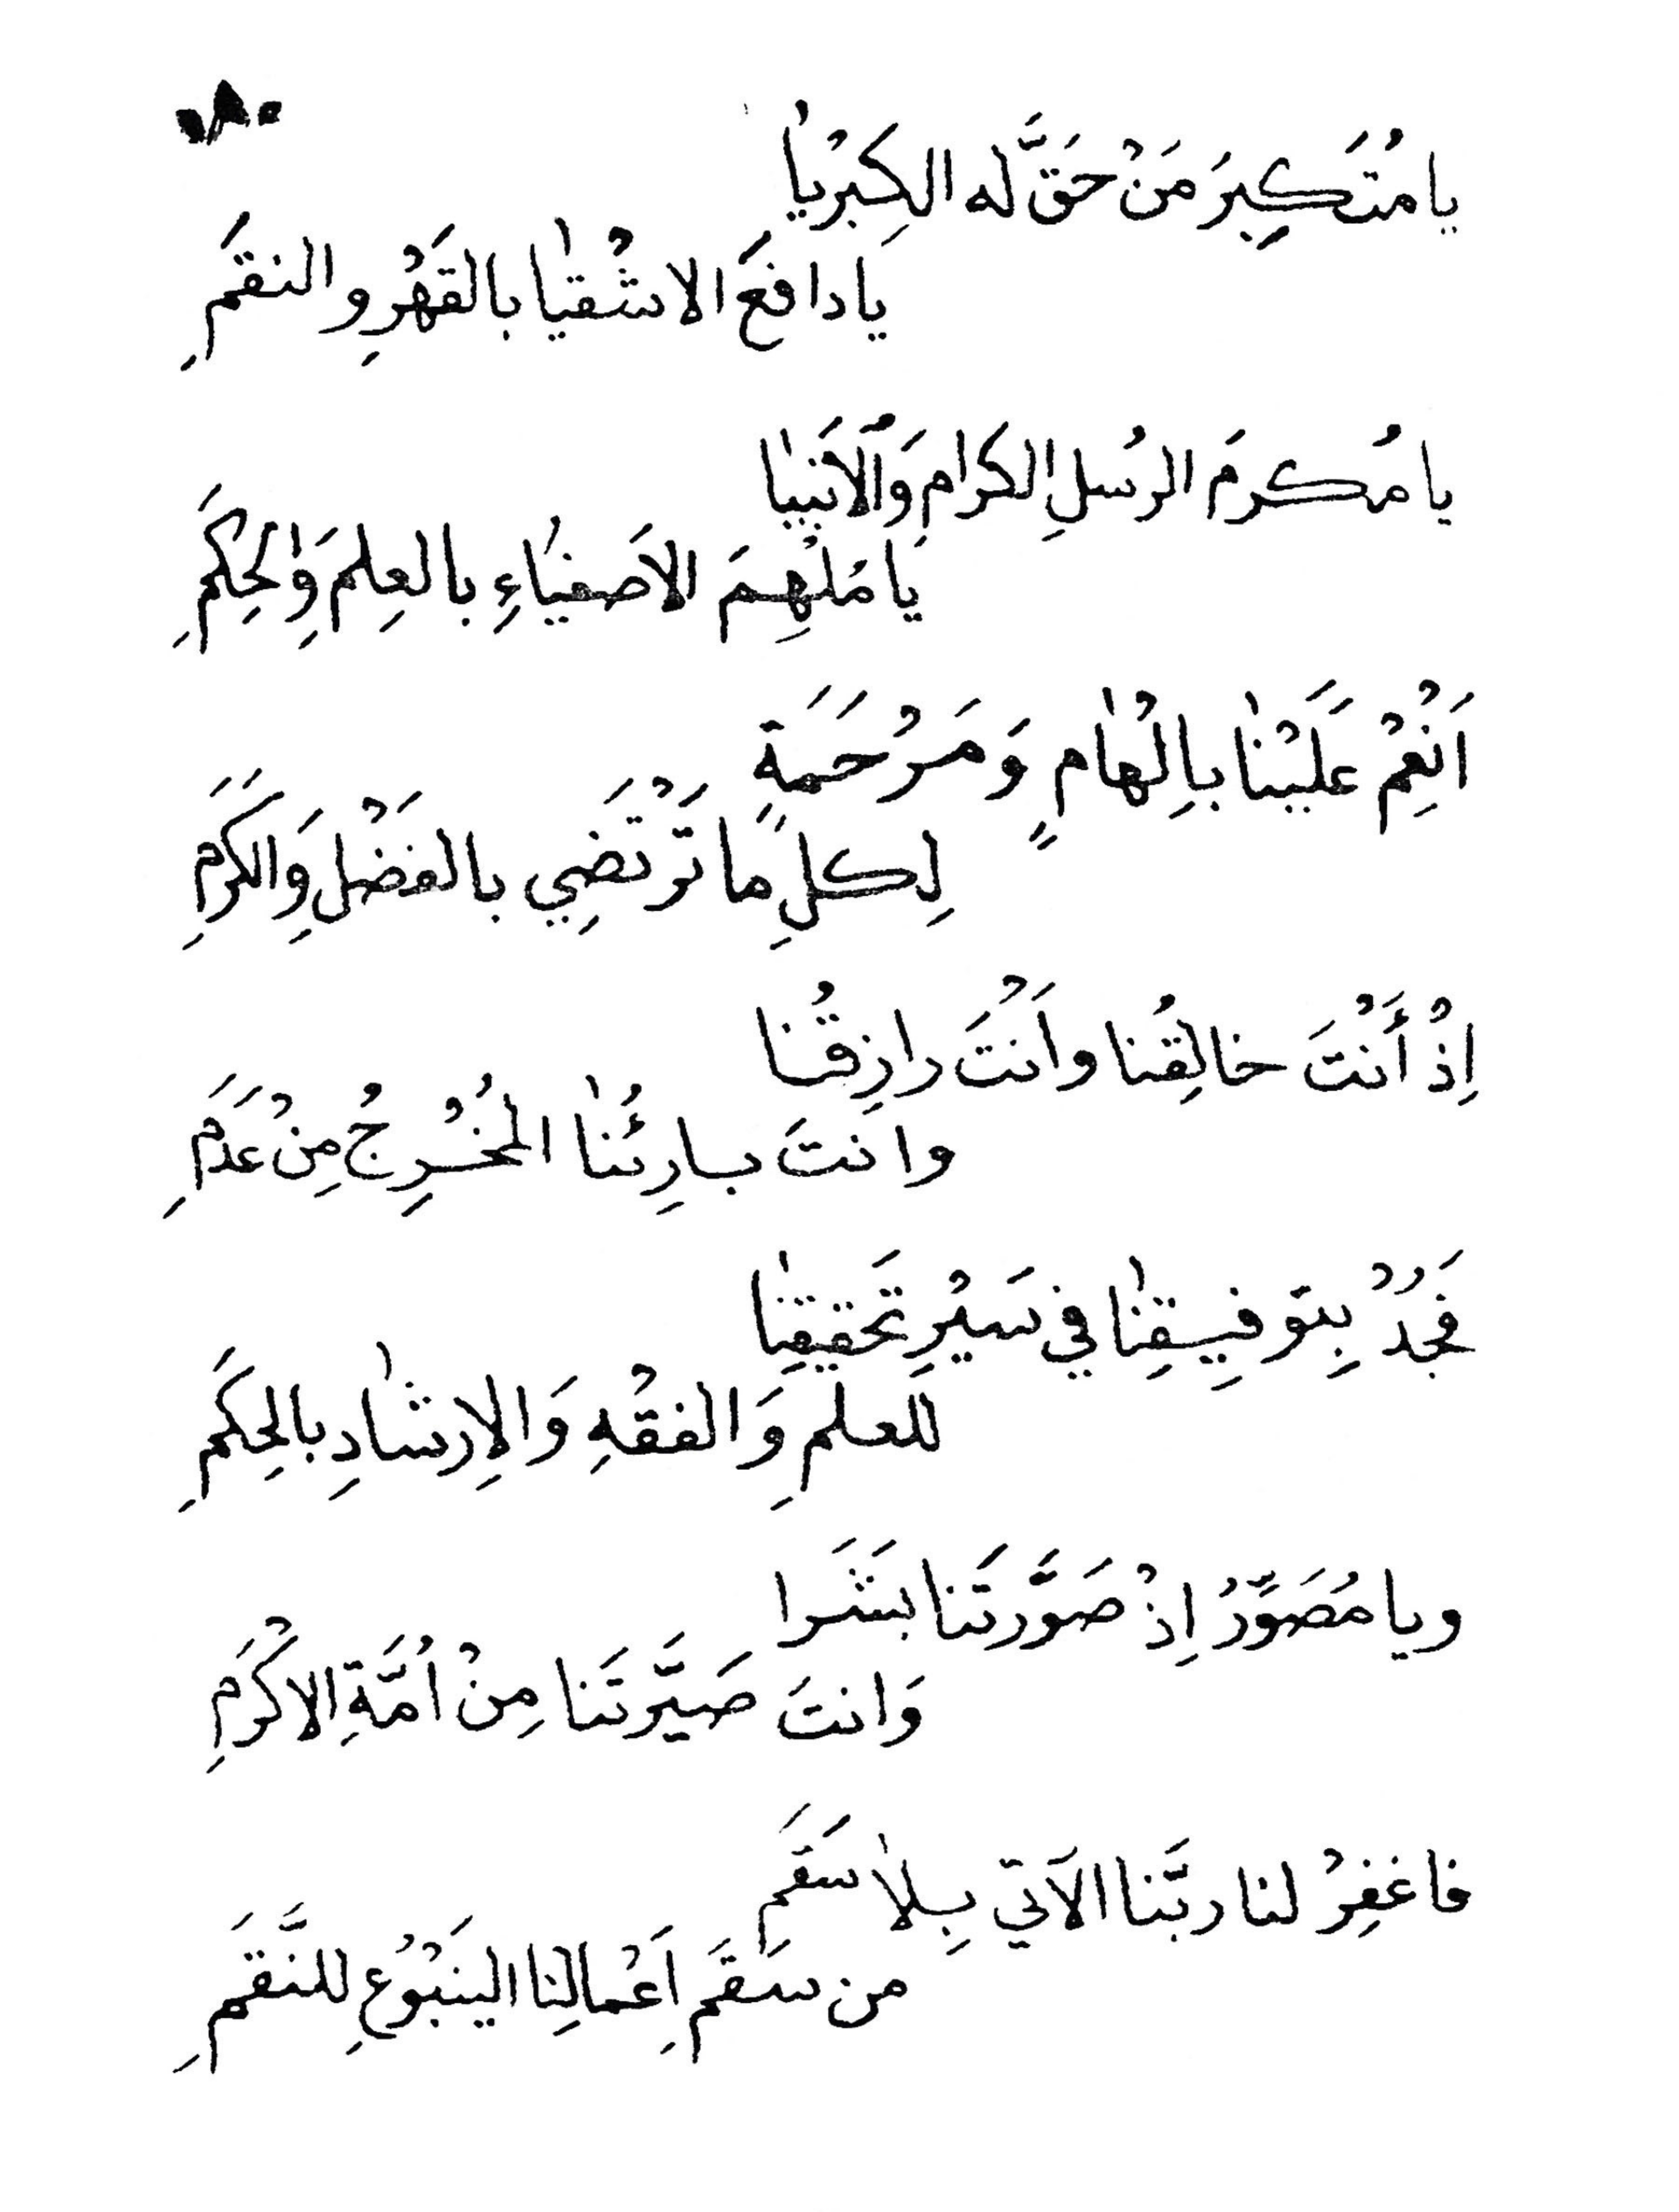 يا مُتَكَبِرَ مَنْ حَقَّ له الكِبْرِيا
يا دافعَ الاشْقيا بالقَهْرِ والنقَمِ
يا مُكرمَ الرسُلِ الكرَام وَالْاَنبيا
يَا مُلْهِمَ الاَصفيَاءِ بالعِلم وَالحِكَمِ
اَنْعِمْ عَلَيْنا بِاِلْهامٍ وَمَرْحَمَةٍ
لِكلِّ ما تَرْتَضِي بالفَضْلِ وَالكَرَمِ
اِذْ أَنْتَ خالِقُنا واَنْتَ رازِقُنا
وانتَ بارِئُنا المُخْرِجُ مِنْ عَدَمِ
فَجُدْ بِتوفِيقِنا في سَيْرِ تَحقيقِنا
للعلمِ وَالفقْهِ وَالاِرشادِ بالحِكَمِ
ويا مُصَوِّرُ اِذْ صَوَّرتَنا بَشَرا
وَانتَ صَيَّرتَنا مِنْ اُمَّةِ الاكْرَمِ
فاغفِرْ لنا ربَّنا الاَتي بِلا سَقَمِ
من سَقَمِ اَعْمالِنا الينَبْوُعِ للنَّقَمِ